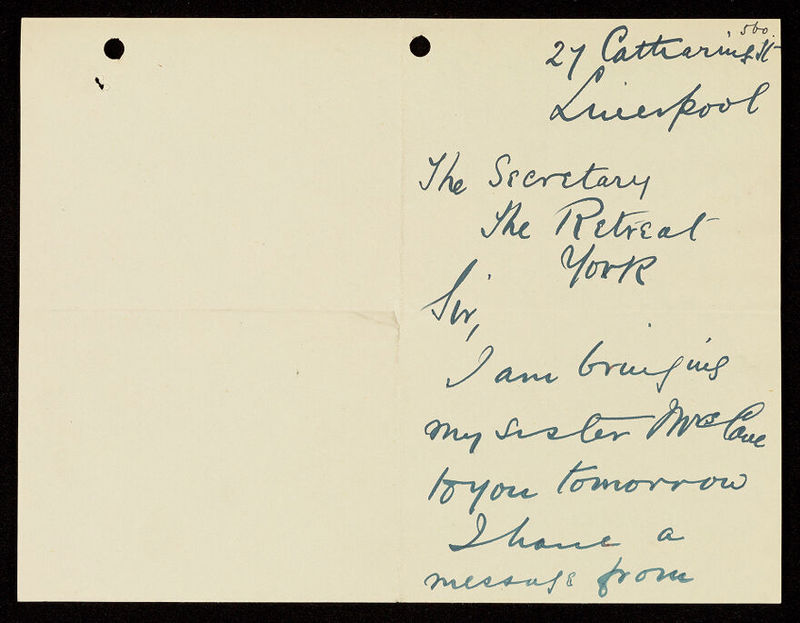 560.
27 Catharine St
Liverpool
The Secretary
The Retreat
York
Sir,
I am bringing
my sister Mrs Cave
to you tomorrow
I have a
message from